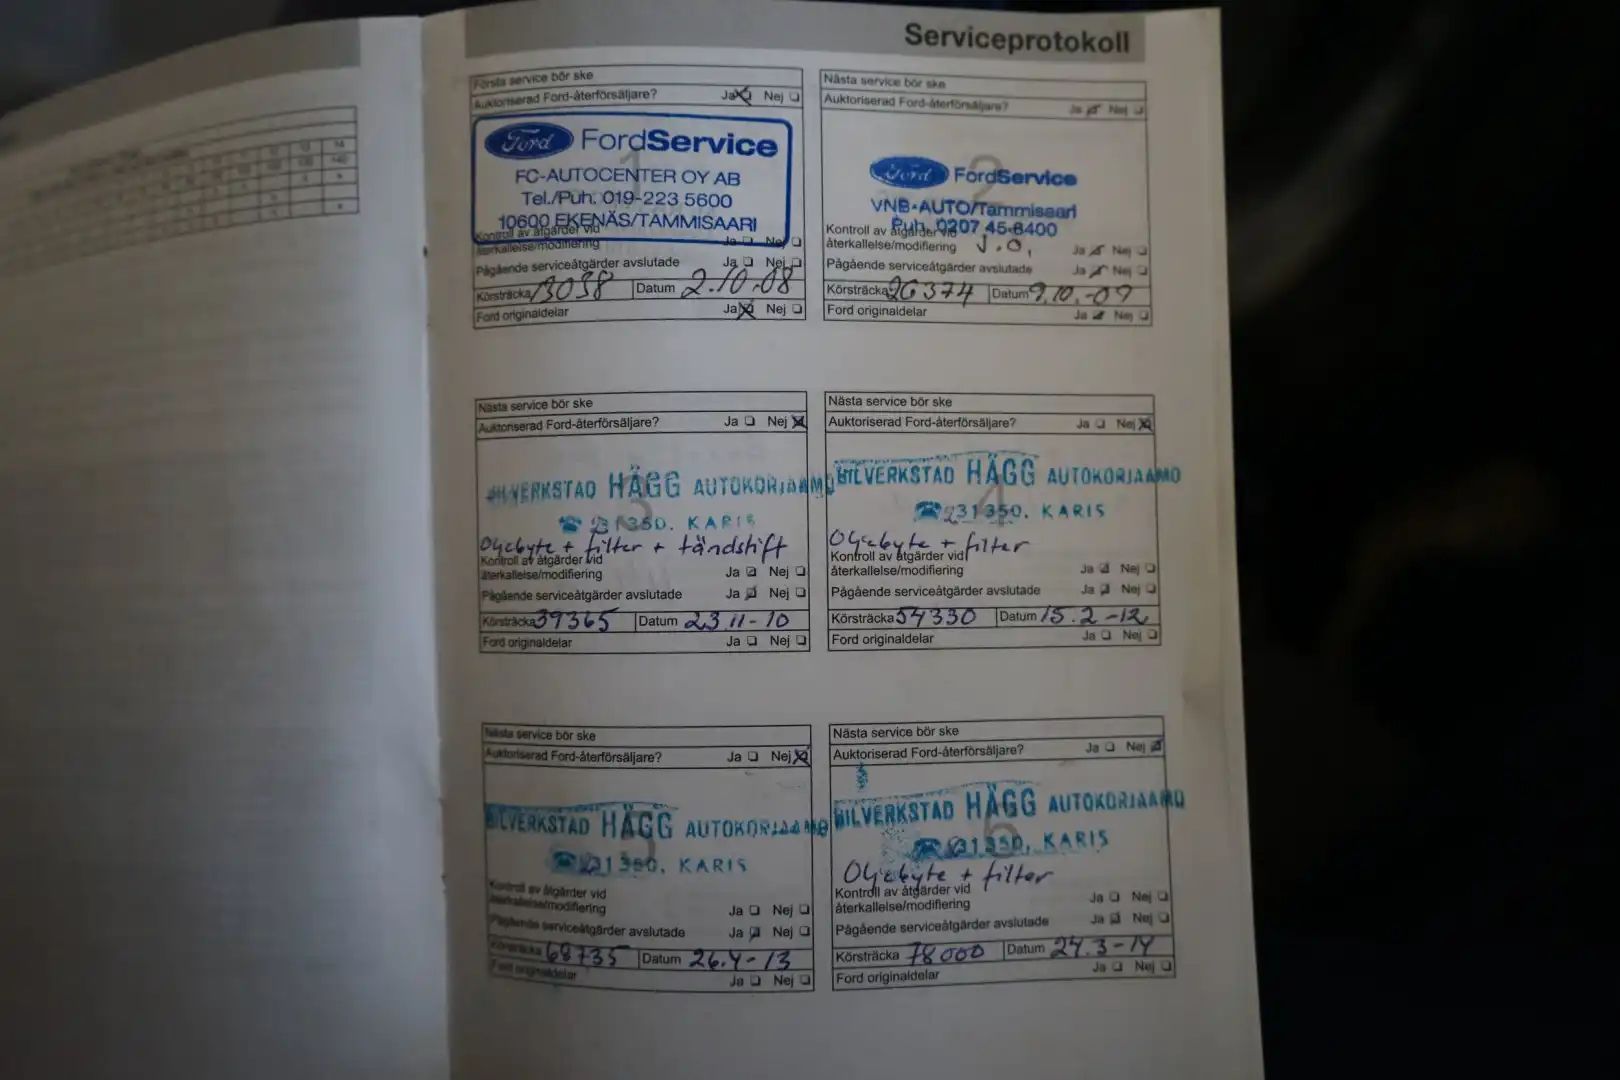 Serviceprotokoll
Första service bör ske
Auktoriserad Ford-återförsäljare? Ja Nej
1
Ford FordService
FC-AUTOCENTER OY AB
Tel./Puh. 019-223 5600
10600 EKENÄS/TAMMISAARI
Kontroll av åtgärder vid
återkallelse/modifiering Ja Nej
Pågående serviceåtgärder avslutade Ja Nej
Körsträcka 13038 Datum 2.10.08
Ford originaldelar Ja Nej
Nästa service bör ske
Auktoriserad Ford-återförsäljare? Ja Nej
2
Ford FordService
VNB-AUTO/Tammisaari
Puh. 0207 45 6400
Kontroll av åtgärder vid
återkallelse/modifiering J.O. Ja Nej
Pågående serviceåtgärder avslutade Ja Nej
Körsträcka 26374 Datum 9.10.-09
Ford originaldelar Ja Nej
Nästa service bör ske
Auktoriserad Ford-återförsäljare? Ja Nej
3
BILVERKSTAD HÄGG AUTOKORJAAMO
☎ 231350. KARIS
Oljebyte + filter + tändstift
Kontroll av åtgärder vid
återkallelse/modifiering Ja Nej
Pågående serviceåtgärder avslutade Ja Nej
Körsträcka 39365 Datum 23.11-10
Ford originaldelar Ja Nej
Nästa service bör ske
Auktoriserad Ford-återförsäljare? Ja Nej
4
BILVERKSTAD HÄGG AUTOKORJAAMO
☎ 231350. KARIS
Oljebyte + filter
Kontroll av åtgärder vid
återkallelse/modifiering Ja Nej
Pågående serviceåtgärder avslutade Ja Nej
Körsträcka 54330 Datum 15.2-12
Ford originaldelar Ja Nej
Nästa service bör ske
Auktoriserad Ford-återförsäljare? Ja Nej
5
BILVERKSTAD HÄGG AUTOKORJAAMO
☎ 231350. KARIS
Kontroll av åtgärder vid
återkallelse/modifiering Ja Nej
Pågående serviceåtgärder avslutade Ja Nej
Körsträcka 68735 Datum 26.4-13
Ford originaldelar Ja Nej
Nästa service bör ske
Auktoriserad Ford-återförsäljare? Ja Nej
6
BILVERKSTAD HÄGG AUTOKORJAAMO
☎ 231350. KARIS
Oljebyte + filter
Kontroll av åtgärder vid
återkallelse/modifiering Ja Nej
Pågående serviceåtgärder avslutade Ja Nej
Körsträcka 78000 Datum 24.3-14
Ford originaldelar Ja Nej